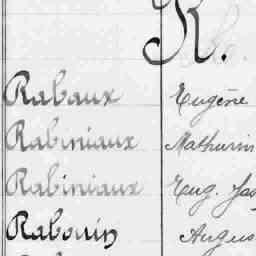 R.
Rabaux Eugène
Rabiniaux Mathurin
Rabiniaux Eug.
Rabouin